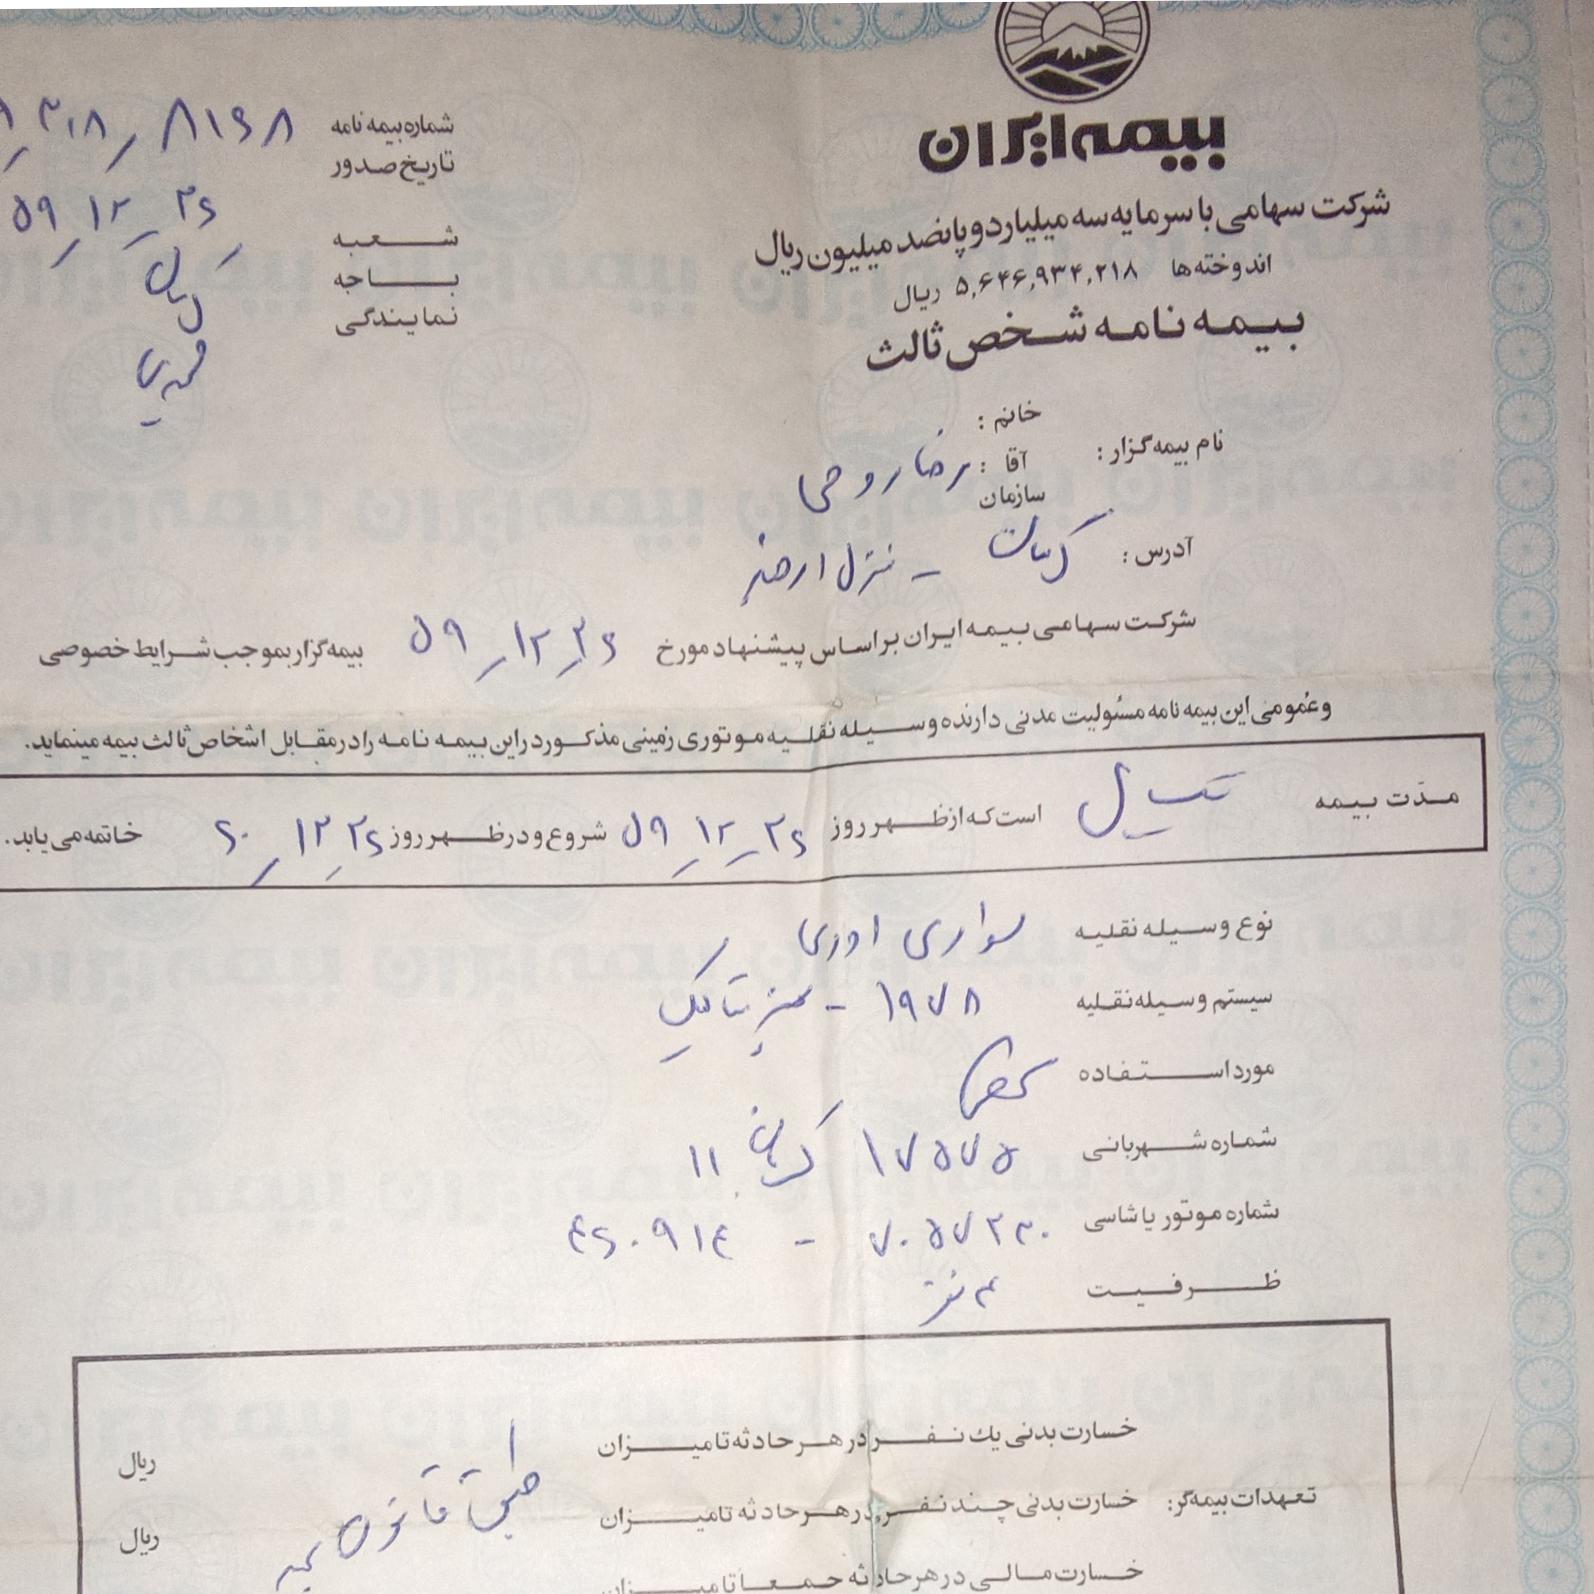 بیمه ایران
شرکت سهامی با سرمایه سه میلیارد و پانصد میلیون ریال
اندوخته‌ها ۵,۶۴۶,۹۳۴,۲۱۸ ریال
بیمه نامه شخص ثالث
شماره بیمه نامه ۸۱۶۸
تاریخ صدور ۵۹_۱۲_۲۶
شعبه
باجه
نمایندگی
نام بیمه گزار :
خانم :
آقا : رضا روحی
سازمان
آدرس : کرمان - منزل
شرکت سهامی بیمه ایران بر اساس پیشنهاد مورخ ۵۹_۱۲_۲۶ بیمه گزار بموجب شرایط خصوصی
و عمومی این بیمه نامه مسئولیت مدنی دارنده وسیله نقلیه موتوری زمینی مذکور در این بیمه نامه را در مقابل اشخاص ثالث بیمه مینماید.
مدت بیمه یکسال است که از ظهر روز ۵۹_۱۲_۲۶ شروع و در ظهر روز ۶۰_۱۲_۲۶ خاتمه می یابد.
نوع وسیله نقلیه سواری
سیستم وسیله نقلیه ۱۹۷۸ -
مورد استفاده شخصی
شماره شهربانی ۱۷۵۷۵ کرمان ۱۱
شماره موتور یا شاسی ۷۰۵۷۲۳۰ - ۴۶۰۹۱۴
ظرفیت ۴ نفر
تعهدات بیمه گر:
خسارت بدنی یک نفر در هر حادثه تا میزان ریال
خسارت بدنی چند نفر در هر حادثه تا میزان ریال
طبق قانون بیمه
خسارت مالی در هر حادثه جمعاً تا میزان